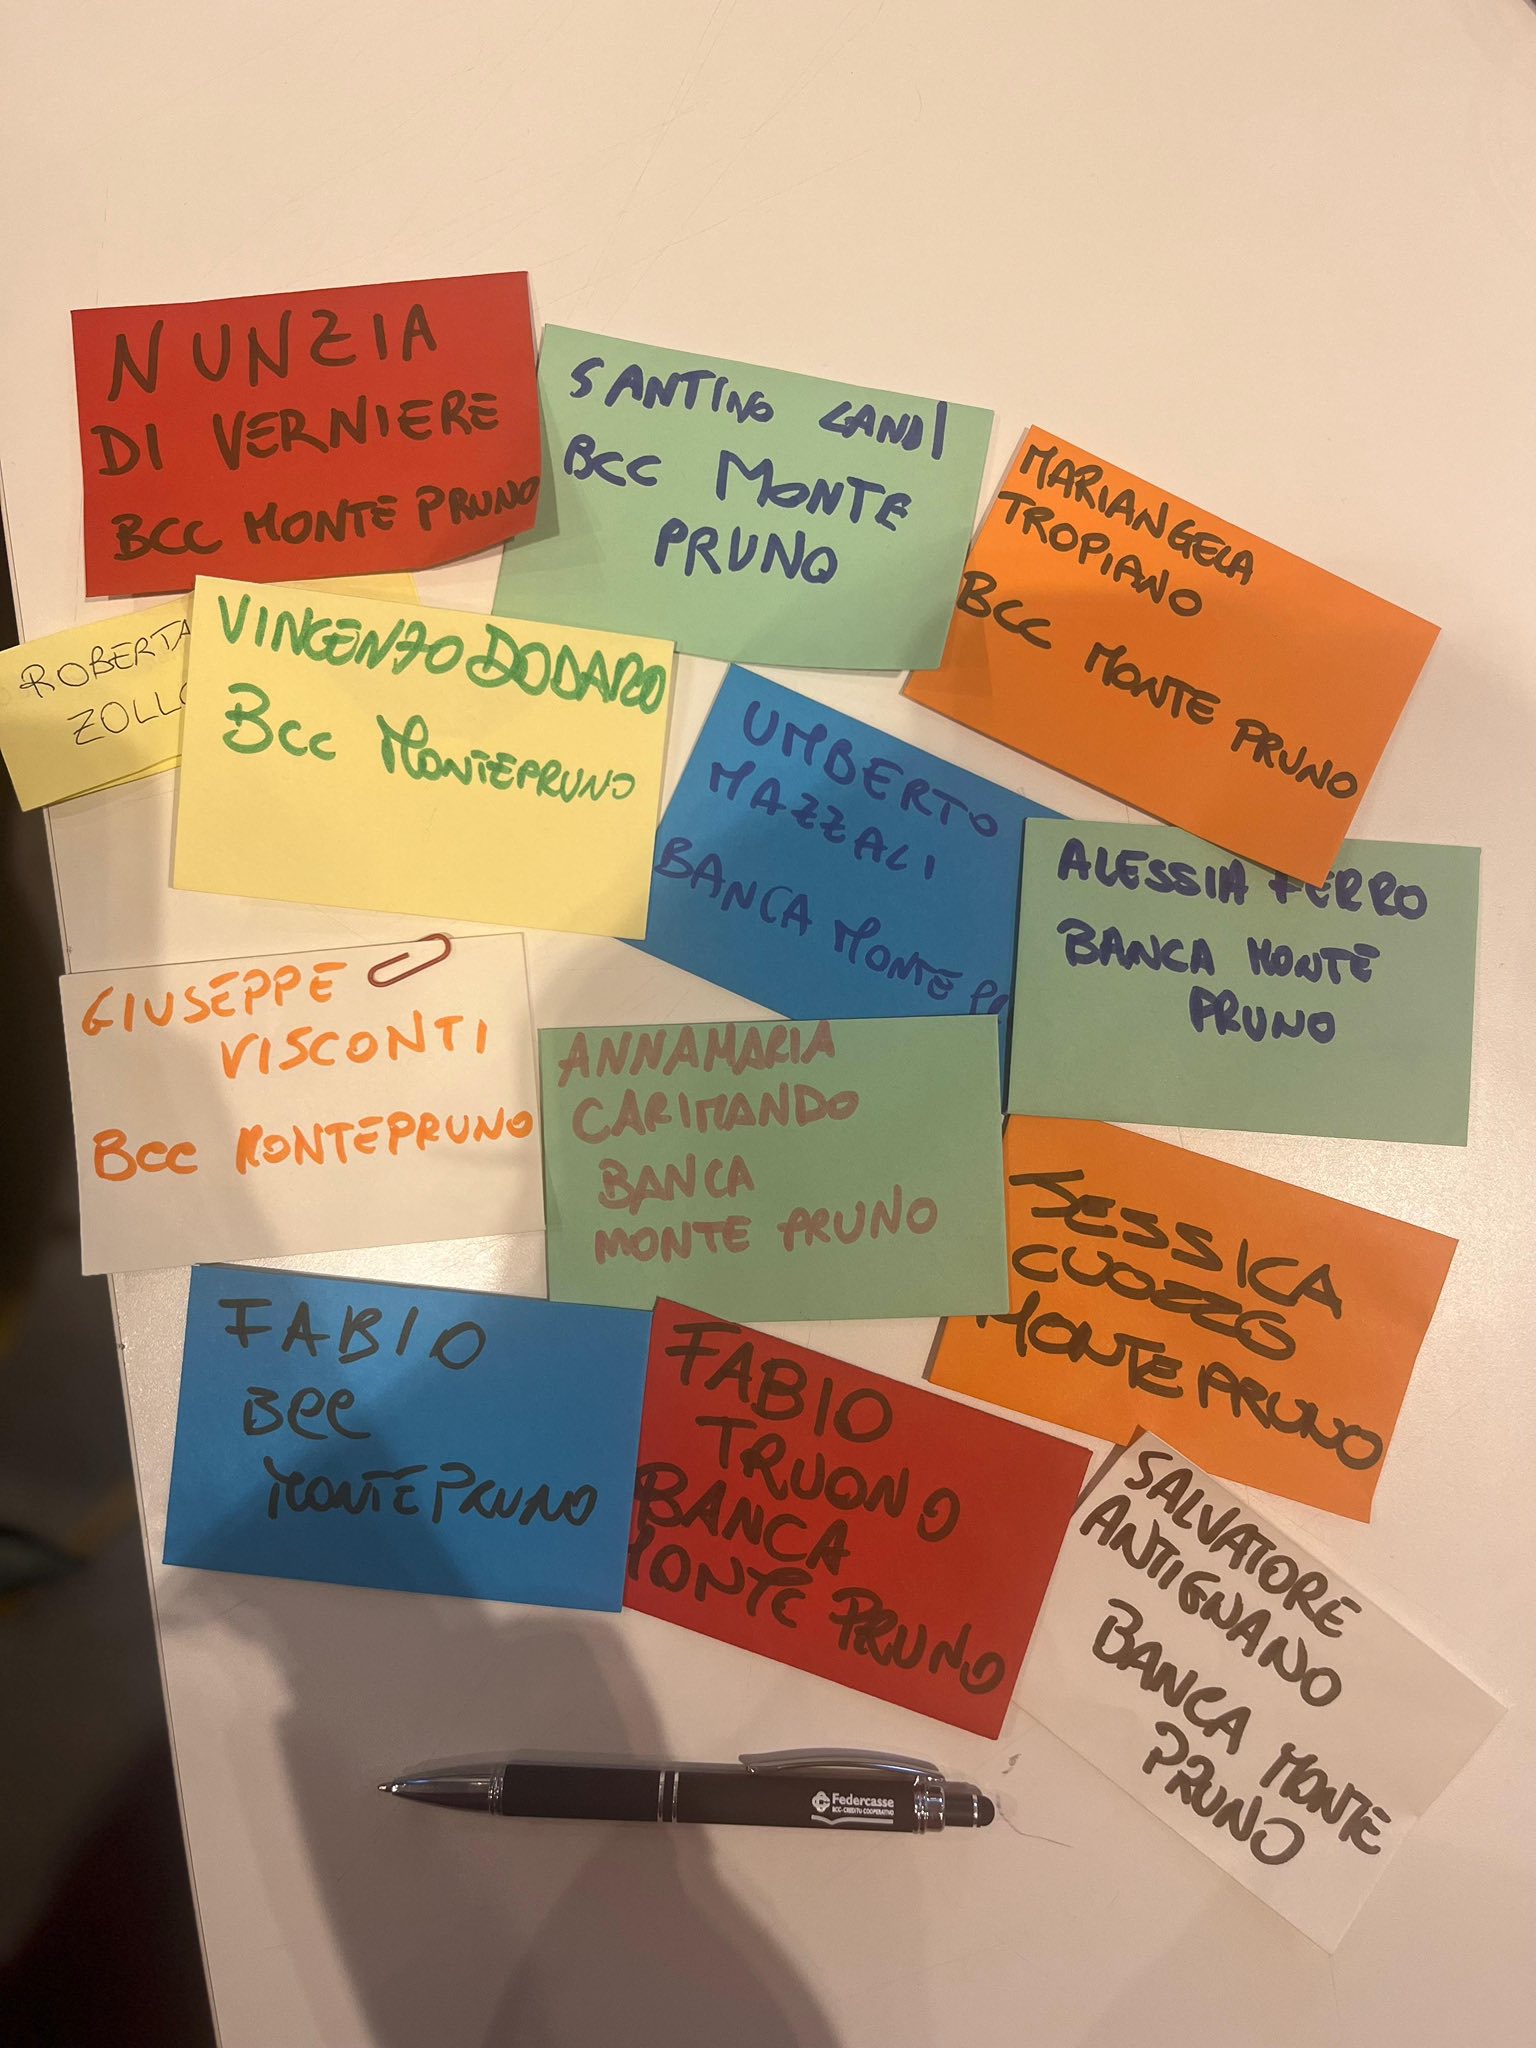 NUNZIA
DI VERNIERE
BCC MONTE PRUNO
SANTINO LANDI
BCC MONTE
PRUNO
MARIANGELA
TROPIANO
BCC MONTE PRUNO
ROBERTA
VINCENZO DODARO
BCC MONTEPRUNO
UMBERTO
MAZZALI
BANCA MONTE
ALESSIA FERRO
BANCA MONTE
PRUNO
GIUSEPPE
VISCONTI
BCC MONTEPRUNO
ANNAMARIA
CARIMANDO
BANCA
MONTE PRUNO
JESSICA
CUOZZO
MONTE PRUNO
FABIO
BCC
MONTE PRUNO
FABIO
TRUONO
BANCA
MONTE PRUNO
SALVATORE
ANTIGNANO
BANCA MONTE
PRUNO
Federcasse
BCC-CREDITO COOPERATIVO